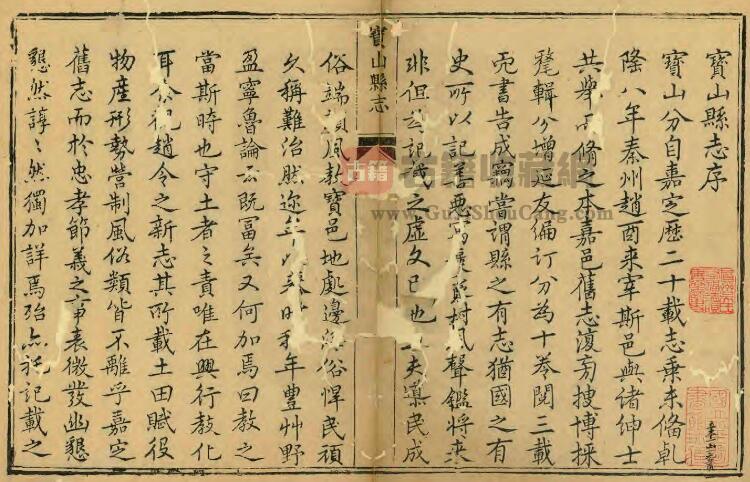 寶山縣志序
寶山分自嘉定歷二十載志乘未俻乾
隆八年秦州趙酉來宰斯邑與諸紳士
共舉而脩之本嘉邑舊志復旁搜博採
輯分增延友編订分為十卷閱三載
書告成竊嘗謂縣之有志猶國之有
史所以記善惡樹風聲鑑將来
非但記識之虛文已也夫漢民成
寶山縣志
俗端頼風教寶邑地處邊俗悍民頑
久稱難治然迩年以時和年豐艸野
盈寧魯論云既富矣又何加焉曰教之
當斯時也守土者之責唯在興行教化
耳今視趙令之新志其所載土田賦役
物産形勢營制風俗類皆不離乎嘉定
舊志而於忠孝節義之事表微發幽懇
懇然諄〻然獨加詳焉殆亦記載之
古籍收藏網
www.GuJiShouCang.com